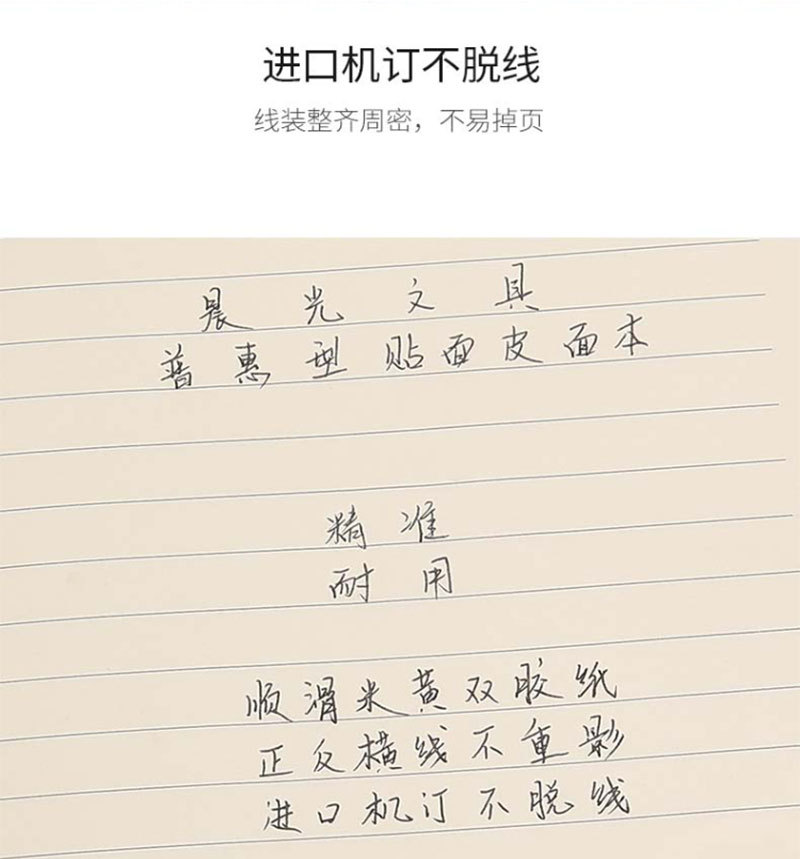 进口机订不脱线
线装整齐周密，不易掉页
晨光文具
普惠型贴面皮面本
精准
耐用
顺滑米黄双胶纸
正反横线不重影
进口机订不脱线